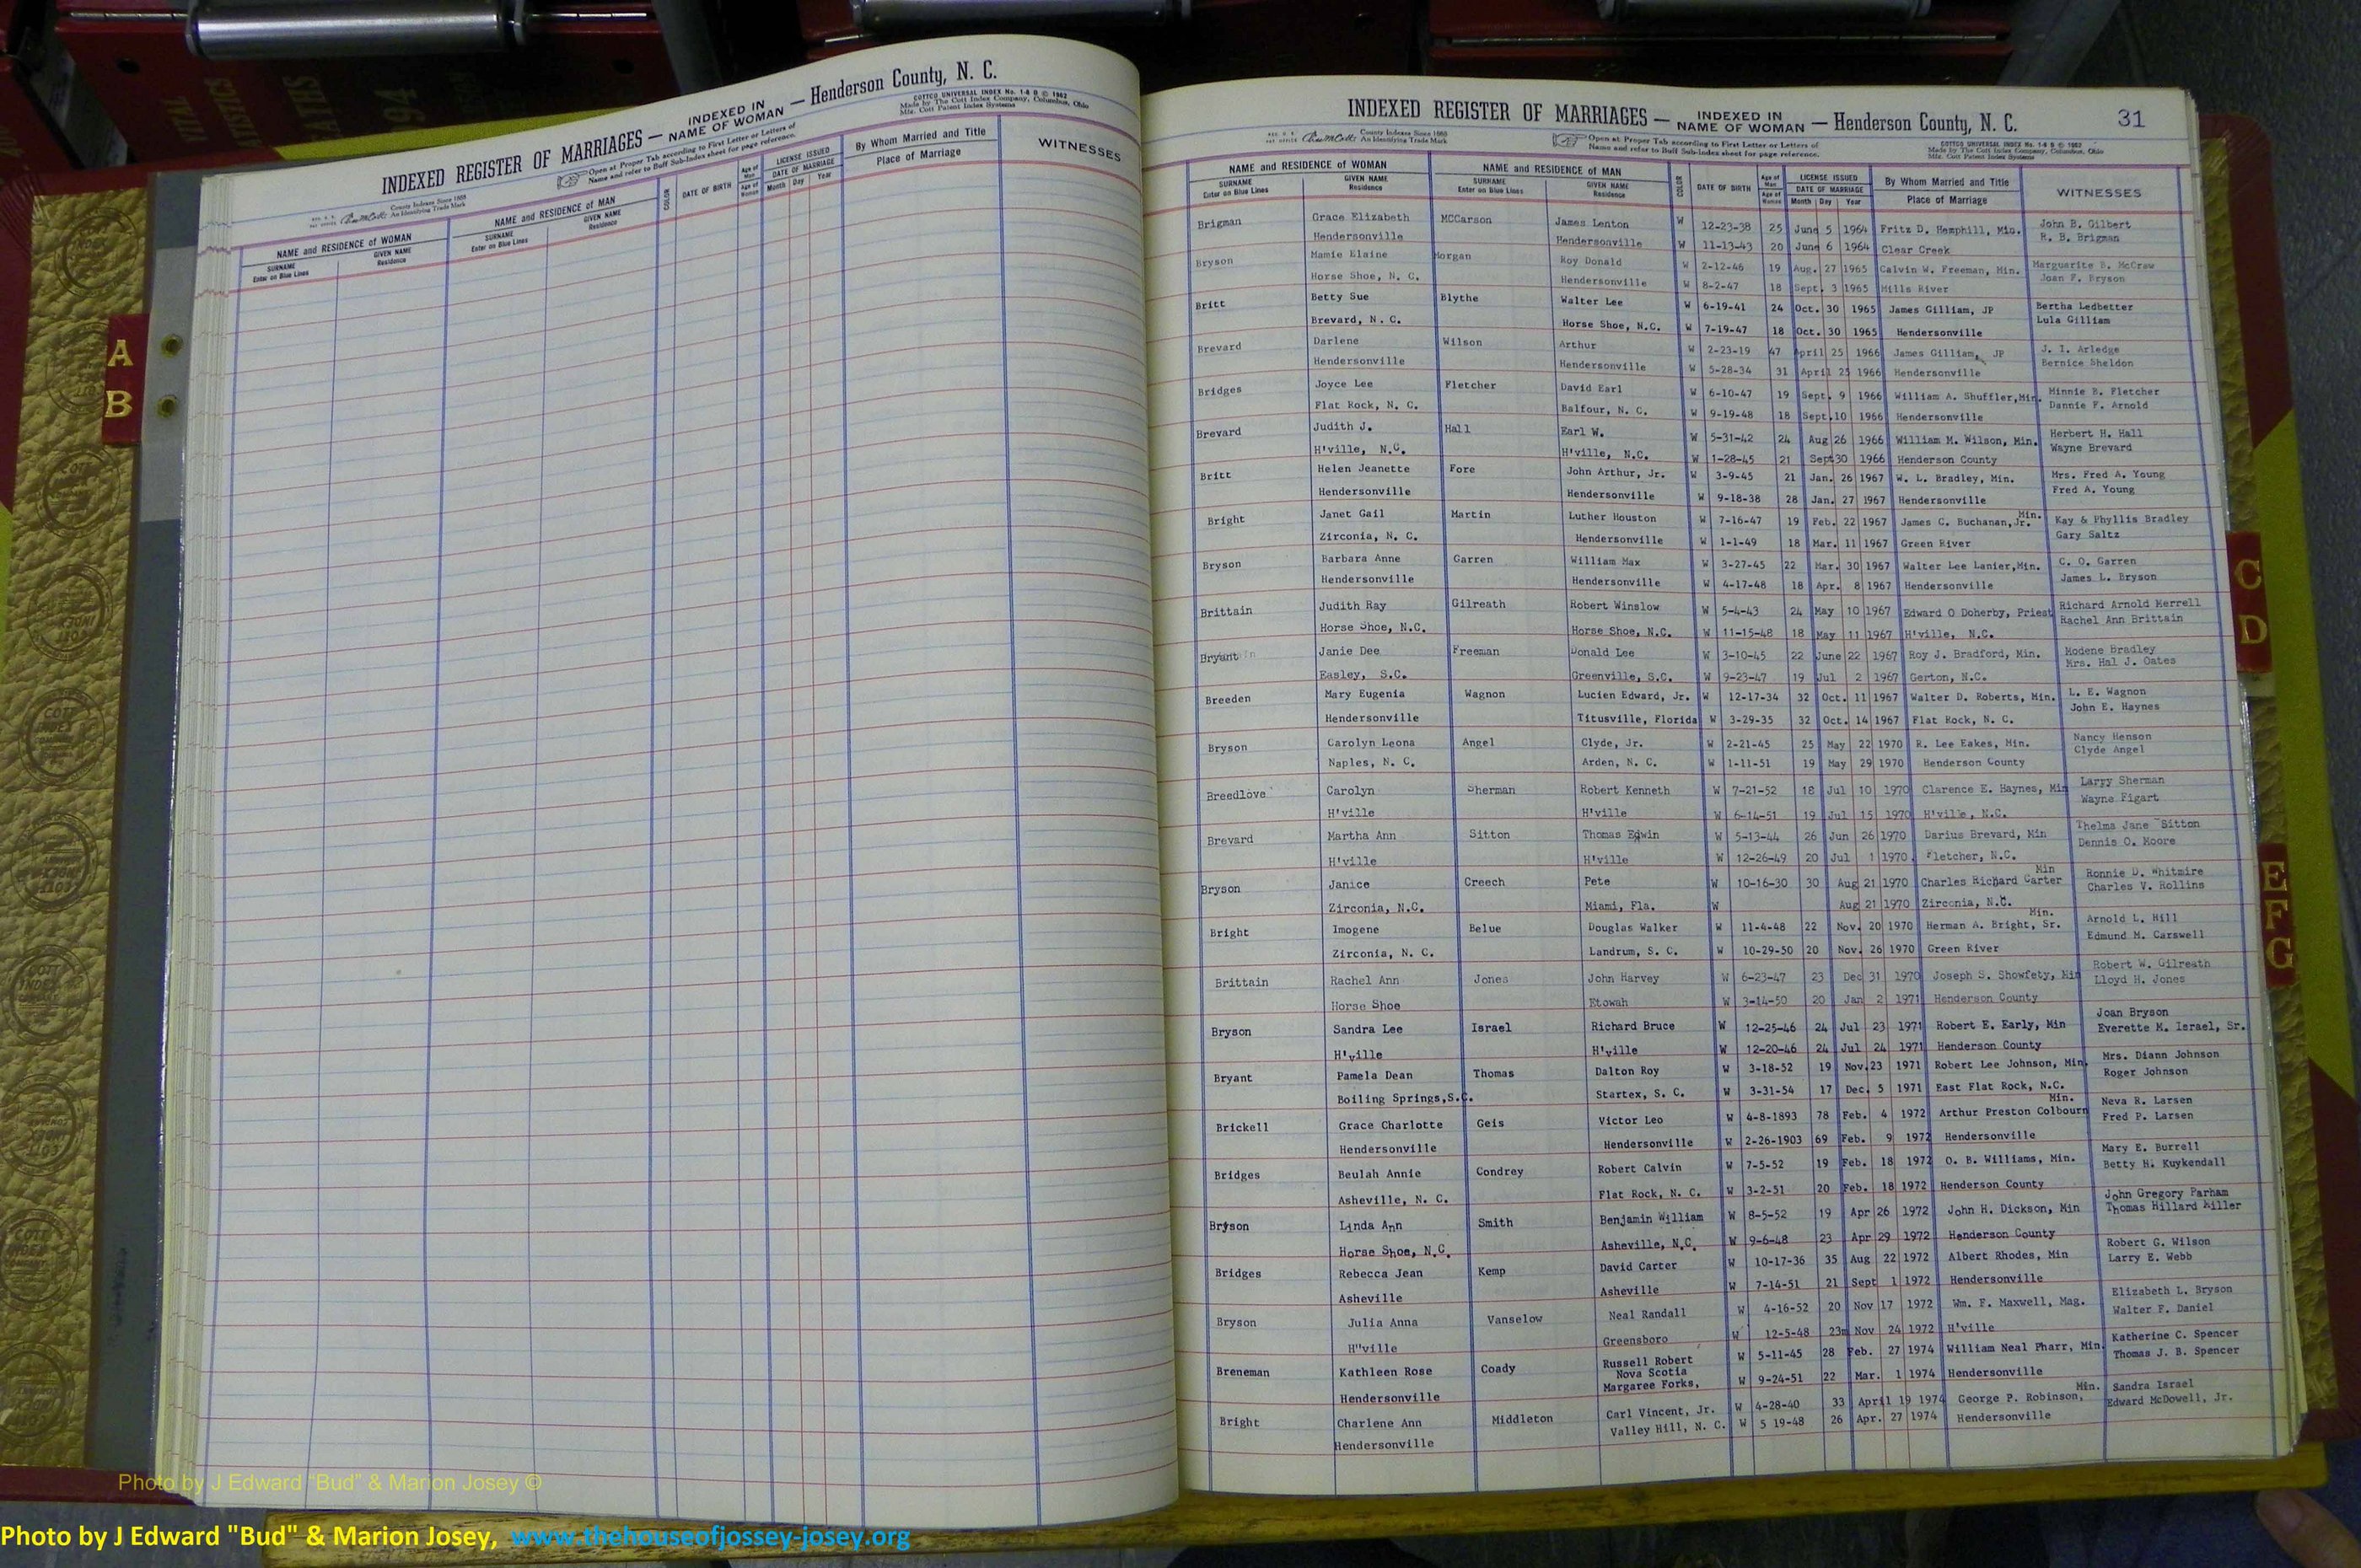 VITAL
94
INDEXED REGISTER OF MARRIAGES — INDEXED IN NAME OF WOMAN — Henderson County, N. C.
County Indexes Since 1888
An Identifying Trade Mark
Open at Proper Tab according to First Letter or Letters of
Name and refer to Buff Sub-Index sheet for page reference.
COTTCO UNIVERSAL INDEX No. 1-8 B © 1962
Made by The Cott Index Company, Columbus, Ohio
Mfg. Cott Patent Index Systems
NAME and RESIDENCE OF WOMAN NAME and RESIDENCE OF MAN COLOR DATE OF BIRTH Age of Man Age of Woman LICENSE ISSUED DATE OF MARRIAGE By Whom Married and Title WITNESSES
SURNAME Enter on Blue Lines GIVEN NAME Residence SURNAME Enter on Blue Lines GIVEN NAME Residence Month Day Year Place of Marriage
A
B
INDEXED REGISTER OF MARRIAGES — INDEXED IN NAME OF WOMAN — Henderson County, N. C. 31
County Indexes Since 1888
An Identifying Trade Mark
Open at Proper Tab according to First Letter or Letters of
Name and refer to Buff Sub-Index sheet for page reference.
COTTCO UNIVERSAL INDEX No. 1-8 B © 1962
Made by The Cott Index Company, Columbus, Ohio
Mfg. Cott Patent Index Systems
NAME and RESIDENCE OF WOMAN NAME and RESIDENCE OF MAN COLOR DATE OF BIRTH Age of Man Age of Woman LICENSE ISSUED DATE OF MARRIAGE By Whom Married and Title WITNESSES
SURNAME Enter on Blue Lines GIVEN NAME Residence SURNAME Enter on Blue Lines GIVEN NAME Residence Month Day Year Place of Marriage
Brigman Grace Elizabeth MCCarson James Lenton W 12-23-38 25 June 5 1964 Fritz D. Hemphill, Min. John B. Gilbert
Hendersonville Hendersonville W 11-13-43 20 June 6 1964 Clear Creek R. B. Brigman
Bryson Mamie Elaine Morgan Roy Donald W 2-12-46 19 Aug. 27 1965 Calvin W. Freeman, Min. Marguerite B. McCraw
Horse Shoe, N. C. Hendersonville W 8-2-47 18 Sept. 3 1965 Mills River Joan F. Bryson
Britt Betty Sue Blythe Walter Lee W 6-19-41 24 Oct. 30 1965 James Gilliam, JP Bertha Ledbetter
Brevard, N. C. Horse Shoe, N.C. W 7-19-47 18 Oct. 30 1965 Hendersonville Lula Gilliam
Brevard Darlene Wilson Arthur W 2-23-19 47 April 25 1966 James Gilliam, JP J. I. Arledge
Hendersonville Hendersonville W 5-28-34 31 April 25 1966 Hendersonville Bernice Sheldon
Bridges Joyce Lee Fletcher David Earl W 6-10-47 19 Sept. 9 1966 William A. Shuffler,Min. Minnie B. Fletcher
Flat Rock, N. C. Balfour, N. C. W 9-19-48 18 Sept.10 1966 Hendersonville Dannie F. Arnold
Brevard Judith J. Hall Earl W. W 5-31-42 24 Aug 26 1966 William M. Wilson, Min. Herbert H. Hall
H'ville, N.C. H'ville, N.C. W 1-28-45 21 Sept30 1966 Henderson County Wayne Brevard
Britt Helen Jeanette Fore John Arthur, Jr. W 3-9-45 21 Jan. 26 1967 W. L. Bradley, Min. Mrs. Fred A. Young
Hendersonville Hendersonville W 9-18-38 28 Jan. 27 1967 Hendersonville Fred A. Young
Bright Janet Gail Martin Luther Houston W 7-16-47 19 Feb. 22 1967 James C. Buchanan,Jr. Min. Kay & Phyllis Bradley
Zirconia, N. C. Hendersonville W 1-1-49 18 Mar. 11 1967 Green River Gary Saltz
Bryson Barbara Anne Garren William Max W 3-27-45 22 Mar. 30 1967 Walter Lee Lanier,Min. C. O. Garren
Hendersonville Hendersonville W 4-17-48 18 Apr. 8 1967 Hendersonville James L. Bryson
Brittain Judith Ray Gilreath Robert Winslow W 5-4-43 24 May 10 1967 Edward O Doherby, Priest Richard Arnold Merrell
Horse Shoe, N.C. Horse Shoe, N.C. W 11-15-48 18 May 11 1967 H'ville, N.C. Rachel Ann Brittain
Bryant Janie Dee Freeman Donald Lee W 3-10-45 22 June 22 1967 Roy J. Bradford, Min. Modene Bradley
Easley, S.C. Greenville, S.C. W 9-23-47 19 Jul 2 1967 Gerton, N.C. Mrs. Hal J. Oates
Breeden Mary Eugenia Wagnon Lucien Edward, Jr. W 12-17-34 32 Oct. 11 1967 Walter D. Roberts, Min. L. E. Wagnon
Hendersonville Titusville, Florida W 3-29-35 32 Oct. 14 1967 Flat Rock, N. C. John E. Haynes
Bryson Carolyn Leona Angel Clyde, Jr. W 2-21-45 25 May 22 1970 R. Lee Eakes, Min. Nancy Henson
Naples, N. C. Arden, N. C. W 1-11-51 19 May 29 1970 Henderson County Clyde Angel
Breedlove Carolyn Sherman Robert Kenneth W 7-21-52 18 Jul 10 1970 Clarence E. Haynes, Min Larry Sherman
H'ville H'ville W 6-14-51 19 Jul 15 1970 H'ville, N.C. Wayne Figart
Brevard Martha Ann Sitton Thomas Edwin W 5-13-44 26 Jun 26 1970 Darius Brevard, Min Thelma Jane Sitton
H'ville H'ville W 12-26-49 20 Jul 1 1970 Fletcher, N.C. Dennis O. Moore
Bryson Janice Creech Pete W 10-16-30 30 Aug 21 1970 Charles Richard Carter Min Ronnie D. Whitmire
Zirconia, N.C. Miami, Fla. W Aug 21 1970 Zirconia, N.C. Charles V. Rollins
Bright Imogene Belue Douglas Walker W 11-4-48 22 Nov. 20 1970 Herman A. Bright, Sr. Min. Arnold L. Hill
Zirconia, N. C. Landrum, S. C. W 10-29-50 20 Nov. 26 1970 Green River Edmund M. Carswell
Brittain Rachel Ann Jones John Harvey W 6-23-47 23 Dec 31 1970 Joseph S. Showfety, Min Robert W. Gilreath
Horse Shoe Etowah W 3-14-50 20 Jan 2 1971 Henderson County Lloyd H. Jones
Bryson Sandra Lee Israel Richard Bruce W 12-25-46 24 Jul 23 1971 Robert E. Early, Min Joan Bryson
H'ville H'ville W 12-20-46 24 Jul 24 1971 Henderson County Everette M. Israel, Sr.
Bryant Pamela Dean Thomas Dalton Roy W 3-18-52 19 Nov.23 1971 Robert Lee Johnson, Min. Mrs. Diann Johnson
Boiling Springs,S.C. Startex, S. C. W 3-31-54 17 Dec. 5 1971 East Flat Rock, N.C. Roger Johnson
Brickell Grace Charlotte Geis Victor Leo W 4-8-1893 78 Feb. 4 1972 Arthur Preston Colbourn Min. Neva R. Larsen
Hendersonville Hendersonville W 2-26-1903 69 Feb. 9 1972 Hendersonville Fred P. Larsen
Bridges Beulah Annie Condrey Robert Calvin W 7-5-52 19 Feb. 18 1972 O. B. Williams, Min. Mary E. Burrell
Asheville, N. C. Flat Rock, N. C. W 3-2-51 20 Feb. 18 1972 Henderson County Betty H. Kuykendall
Bryson Linda Ann Smith Benjamin William W 8-5-52 19 Apr 26 1972 John H. Dickson, Min John Gregory Parham
Horse Shoe, N.C. Asheville, N.C. W 9-6-48 23 Apr 29 1972 Henderson County Thomas Hillard Miller
Bridges Rebecca Jean Kemp David Carter W 10-17-36 35 Aug 22 1972 Albert Rhodes, Min Robert G. Wilson
Asheville Asheville W 7-14-51 21 Sept 1 1972 Hendersonville Larry E. Webb
Bryson Julia Anna Vanselow Neal Randall W 4-16-52 20 Nov 17 1972 Wm. F. Maxwell, Mag. Elizabeth L. Bryson
H"ville Greensboro W 12-5-48 23m Nov 24 1972 H'ville Walter F. Daniel
Breneman Kathleen Rose Coady Russell Robert W 5-11-45 28 Feb. 27 1974 William Neal Pharr, Min. Katherine C. Spencer
Nova Scotia
Hendersonville Margaree Forks, W 9-24-51 22 Mar. 1 1974 Hendersonville Thomas J. B. Spencer
Bright Charlene Ann Middleton Carl Vincent, Jr. W 4-28-40 33 April 19 1974 George P. Robinson, Min. Sandra Israel
Hendersonville Valley Hill, N. C. W 5 19-48 26 Apr. 27 1974 Hendersonville Edward McDowell, Jr.
C
D
E
F
G
Photo by J Edward "Bud" & Marion Josey ©
Photo by J Edward "Bud" & Marion Josey, www.thehouseofjossey-josey.org